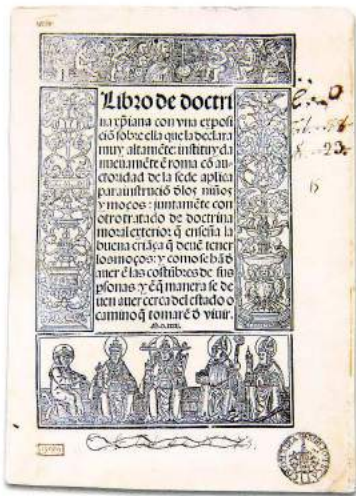 Libro de doctri
na xp̄iana con vna exposi
ciō sobre ella que la declara
muy altamēte: instituyda
nueuamēte ē roma cō au-
ctoridad de la sede aplica
para instruciō ďlos niños
y moços: juntamēte con
otro tratado de doctrina
moral exterior: q̄ enseña la
buena criāça q̄ deuē tener
los moços: y como se hā đ
auer ē las costūbres de sus
p̄sonas y ē q̄ manera se de
uen auer cerca del estado o
camino q̄ tomarē đ viuir.